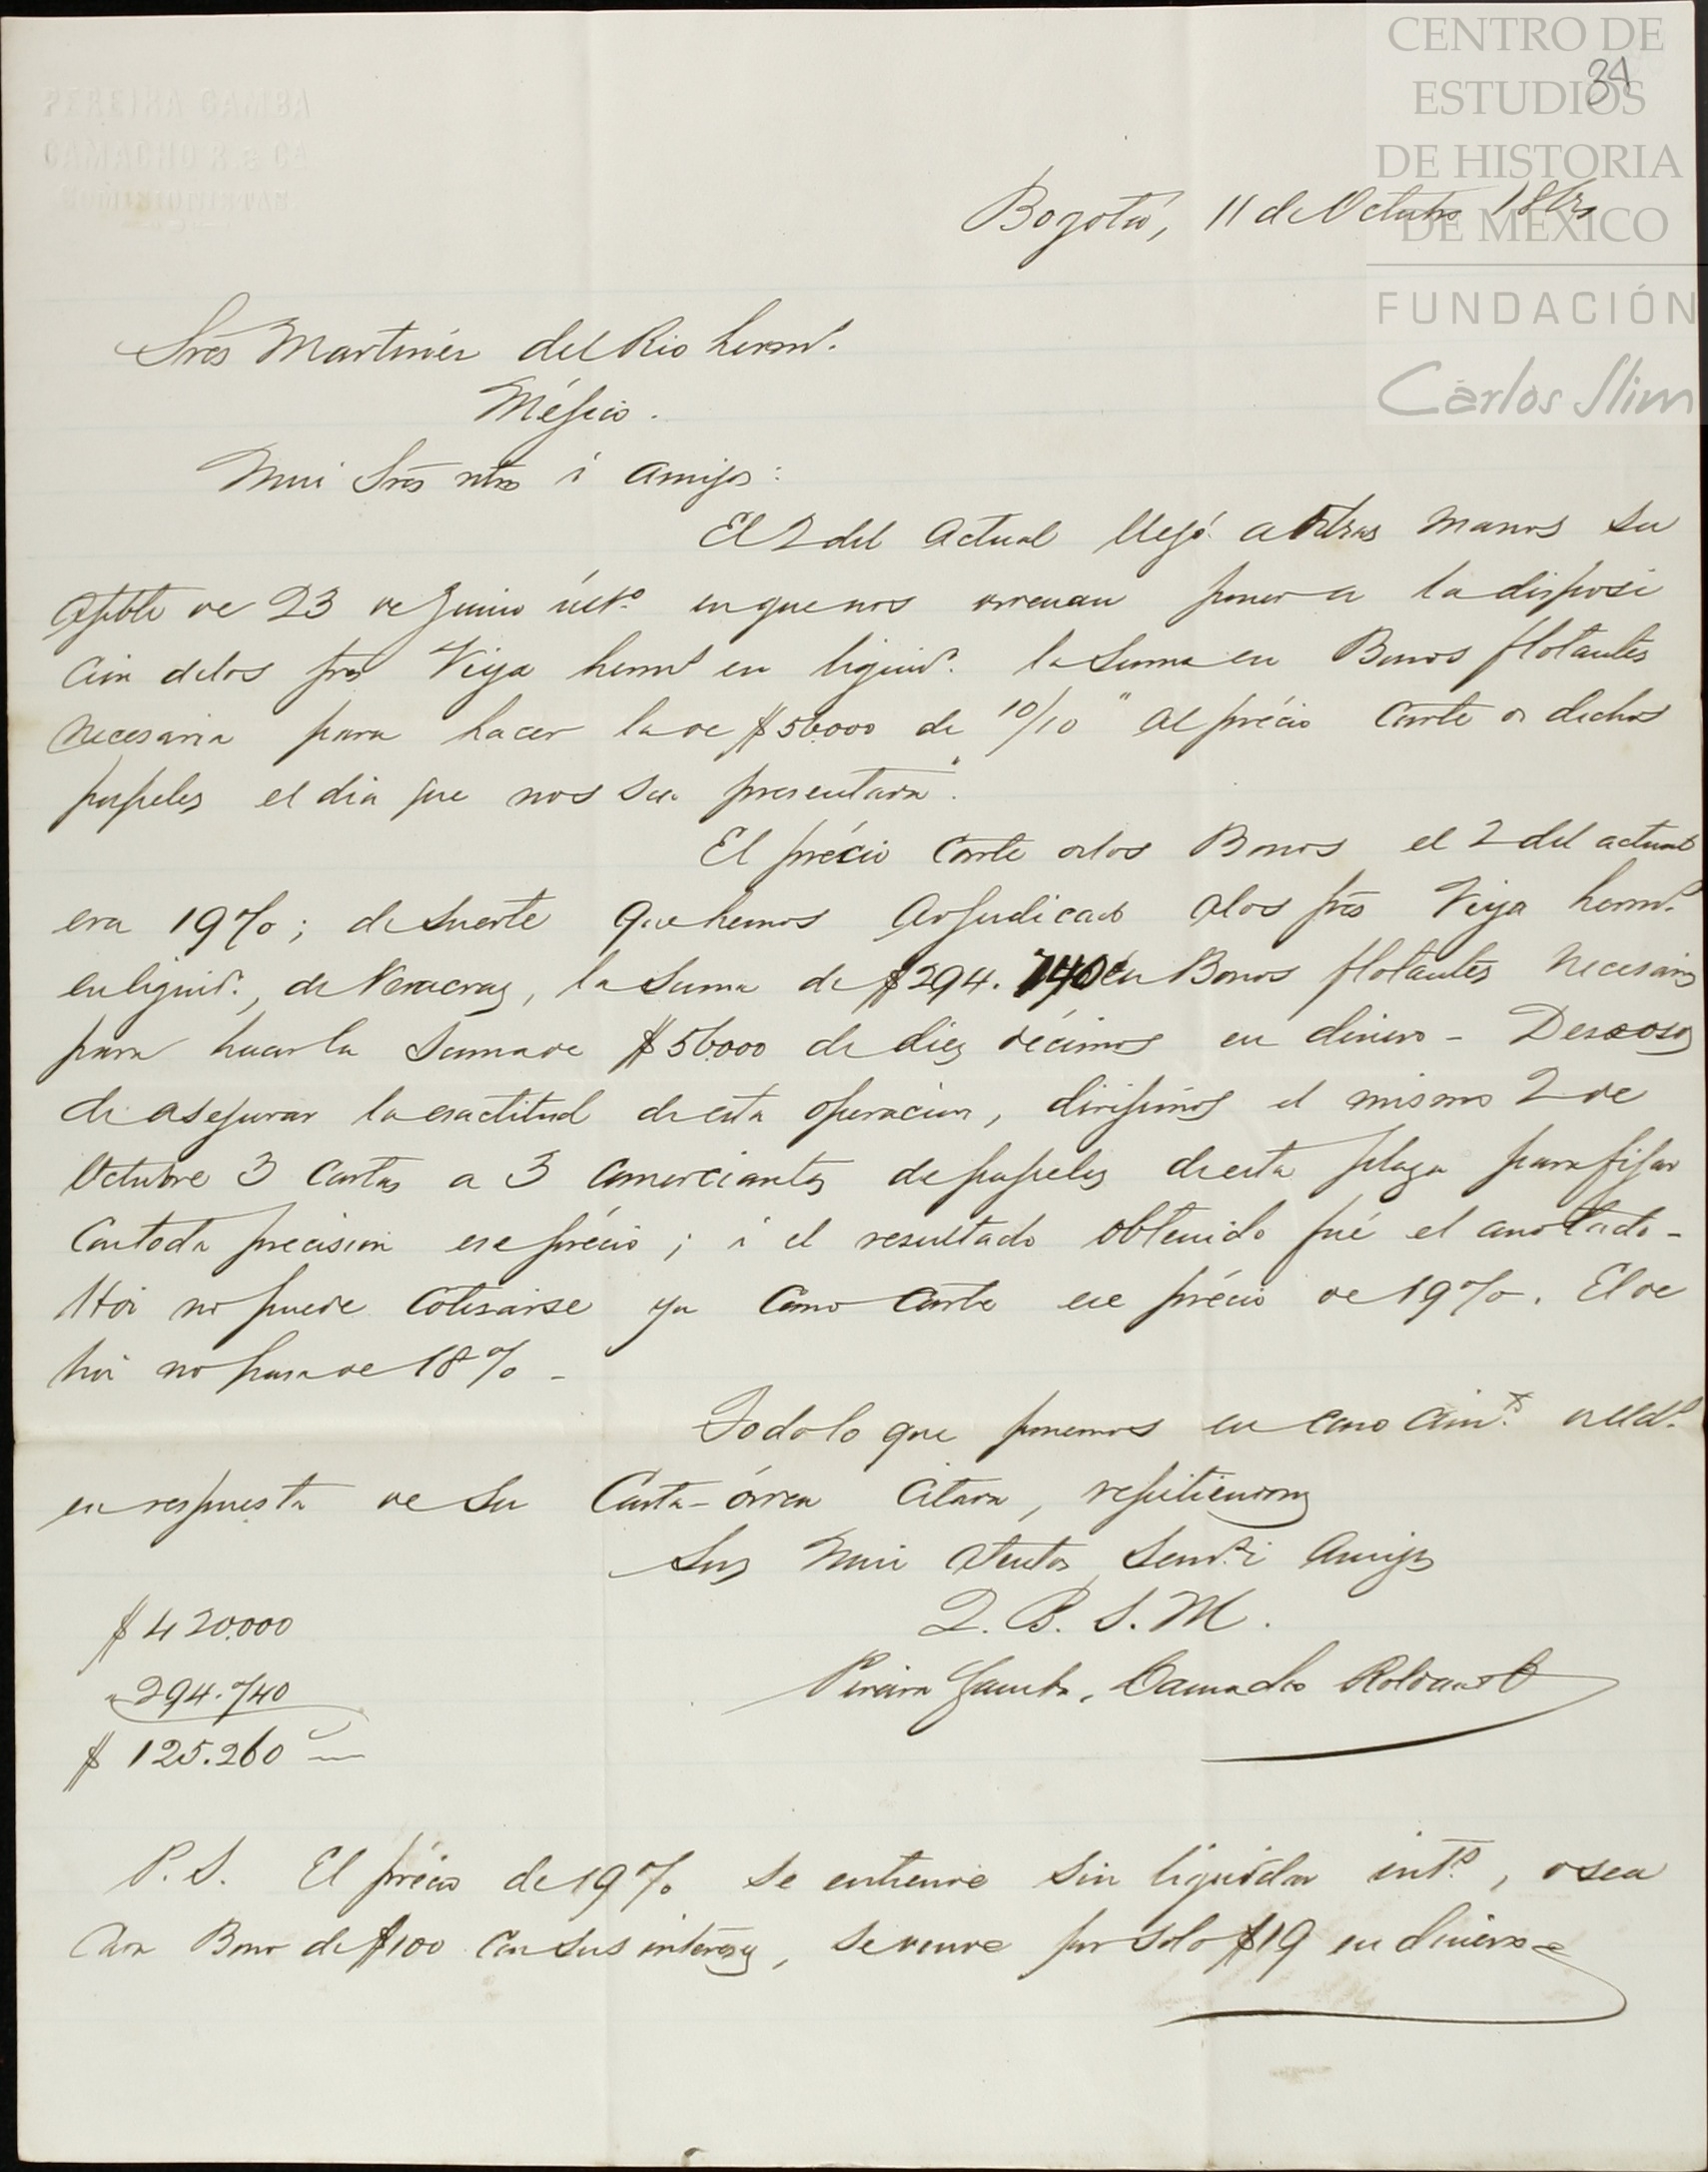 CENTRO DE
ESTUDIOS
DE HISTORIA
DE MÉXICO
FUNDACIÓN
Carlos Slim
34
PEREIRA GAMBA
CAMACHO R. & CA
Bogotá, 11 de Octubre 186
Sres Martinez del Rio herms.
Méjico.
Mui Sres ntros i amigos:
El 2 del actual llegó a ntras manos su
apble de 23 de Junio últo. en que nos ordenan poner a la disposi
cion de los sres Viya herms en liquidn. la suma en Bonos flotantes
necesaria para hacer la de $56.000 de 10/10 "al précio corrte de dichos
papeles el dia que nos sea presentada".
El précio corrte de los Bonos el 2 del actual
era 19%; de suerte que hemos adjudicado a los sres Viya herms.
en liquidn., de Veracruz, la suma de $294.740 en Bonos flotantes necesarios
para hacer la suma de $56.000 de diez décimos en dinero - Deseosos
de asegurar la exactitud de esta operacion, dirijimos el mismo 2 de
Octubre 3 cartas a 3 comerciantes de papeles de esta plaza para fijar
con toda precision ese précio; i el resultado obtenido fué el anotado -
Hoi no puede cotisarse ya como corrte ese précio de 19%. El de
hoi no pasa de 18% -
Todo lo que ponemos en conocimto. de Uds.
en respuesta de su carta-órden citada, repitiendonos
Sus mui atentos servs. i amigos
Q. B. S. M.
Pereira Gamba, Camacho Roldan & C
$ 420.000
" 294.740
$ 125.260
P. S. El précio de 19% se entiende sin liquidar ints., o sea
cada Bono de $100 con sus intereses, se vende por solo $19 en dinero